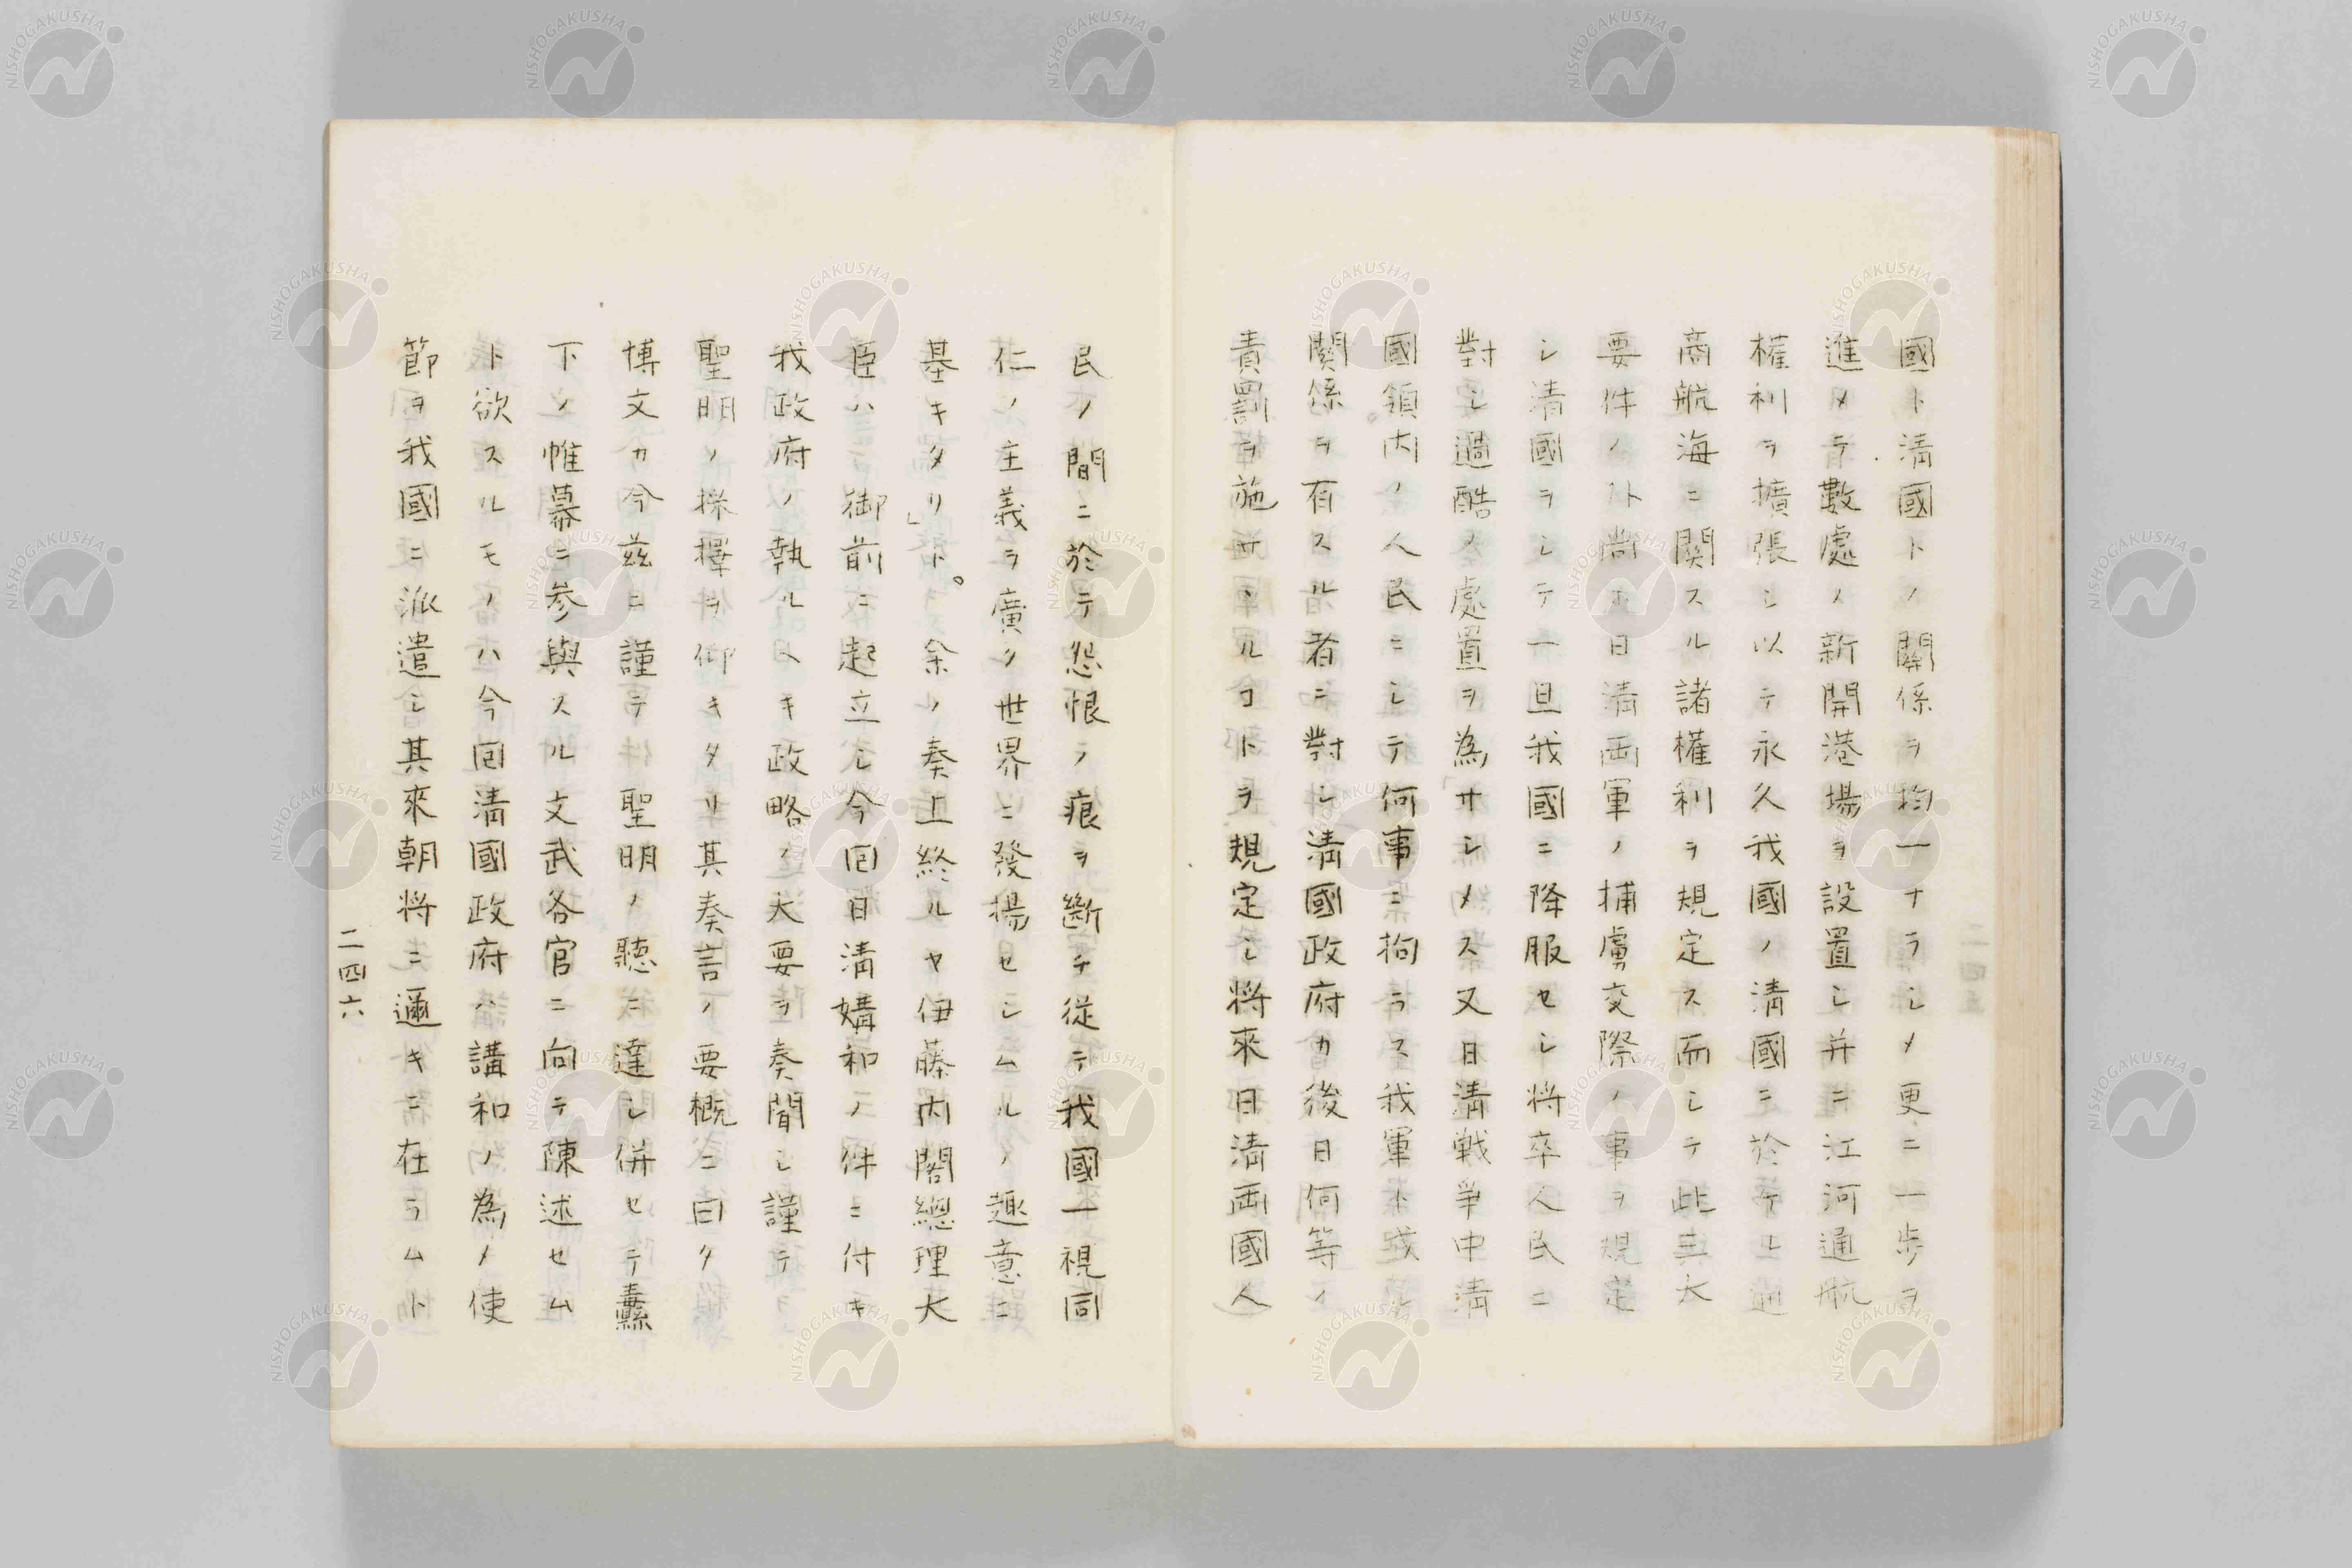 國ト清國トノ關係ヲ均一ナラシメ更ニ一歩ヲ
進メテ數處ノ新開港場ヲ設置シ并ニ江河通航
權利ヲ擴張シ以テ永久我國ノ清國ニ於ケル通
商航海ニ關スル諸權利ヲ規定ス而シテ此三大
要件ノ外尚ホ日清両軍ノ捕虜交際ノ事ヲ規定
シ清國ヲシテ一旦我國ニ降服セシ将卒人民ニ
對シ過酷ノ處置ヲ為サシメス又日清戦争中清
國領内ノ人民ニシテ何事ニ拘ラス我軍ト或ハ
關係ヲ有スル者ニ對シ清國政府カ後日何等ノ
責罰ヲ施サヽルコトヲ規定シ将來日清両國人
民ノ間ニ於テ怨恨ノ痕ヲ斷チ従テ我國一視同
仁ノ主義ヲ廣ク世界ニ發揚セシムルノ趣意ニ
基キタリ」ト。余ノ奏上終ルヤ伊藤内閣總理大
臣ハ御前ニ起立シ今回日清媾和ノ件ニ付キ
我政府ノ執ルヘキ政略ノ大要ヲ奏聞シ謹テ
聖明ノ採擇ヲ仰キタリ其奏言ノ要概ニ曰ク
博文カ今茲ニ謹テ聖明ノ聴ニ達シ併セテ纛
下ノ帷幕ニ参與スル文武各官ニ向テ陳述セム
ト欲スルモノハ今回清國政府ハ講和ノ為メ使
節ヲ我國ニ派遣シ其來朝将ニ邇キニ在ラムト
二四六
NISHOGAKUSHA